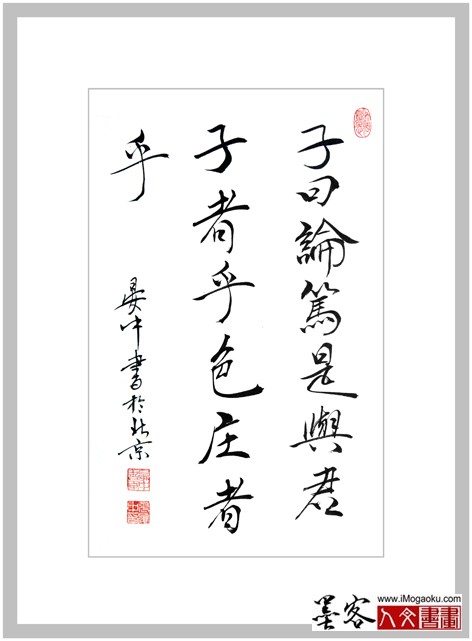 子曰論篤是與君
子者乎色庄者
乎
晏中書於北京
www.iMogaoku.com
墨客
人文書畫